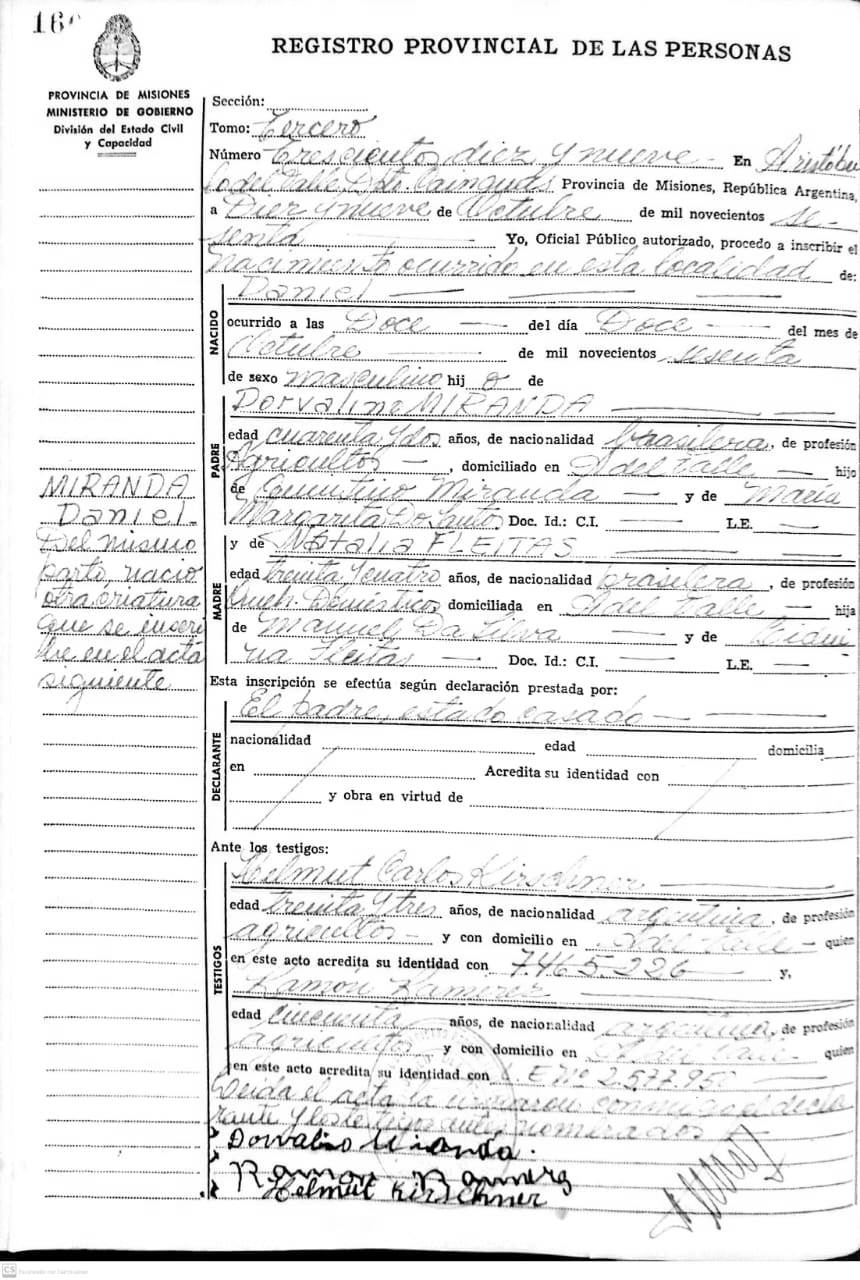 16
REGISTRO PROVINCIAL DE LAS PERSONAS
PROVINCIA DE MISIONES
MINISTERIO DE GOBIERNO
División del Estado Civil
y Capacidad
Sección:
Tomo: Tercero
Número Trescientos diez y nueve - En Aristóbu
lo del Valle Dto. Cainguás Provincia de Misiones, República Argentina,
a Diez y nueve de Octubre de mil novecientos se-
senta Yo, Oficial Público autorizado, procedo a inscribir el
nacimiento ocurrido en esta localidad de:
NACIDO
Daniel
ocurrido a las Doce del día Doce del mes de
Octubre de mil novecientos sesenta
de sexo masculino hij o de
PADRE
Dorvalino MIRANDA
edad cuarenta y dos años, de nacionalidad brasilera, de profesión
Agricultor, domiciliado en A del Valle hijo
de Miranda y de María
Margarita Do Santos Doc. Id.: C.I. L.E.
MADRE
y de Natalia FLEITAS
edad treinta y cuatro años, de nacionalidad brasilera, de profesión
Queh. Domésticos domiciliada en A del Valle hija
de Manuel Da Silva y de
Fleitas Doc. Id.: C.I. L.E.
MIRANDA
Daniel-
Del mismo
parto, nació
otra criatura
que se inscri
be en el acta
siguiente
Esta inscripción se efectúa según declaración prestada por:
DECLARANTE
El padre, estado casado
nacionalidad edad domicilia
en Acredita su identidad con
y obra en virtud de
Ante los testigos:
TESTIGOS
Helmut Carlos Kirschner
edad treinta y tres años, de nacionalidad argentina, de profesión
agricultor y con domicilio en A del Valle - quien
en este acto acredita su identidad con 7.465.226 y,
Ramón Ramirez
edad cincuenta años, de nacionalidad argentina, de profesión
agricultor y con domicilio en A. del Valle quien
en este acto acredita su identidad con L. E Nº 2.577.950
Leida el acta la firmaron conmigo el decla
rante y los testigos antes nombrados
Dorvalino Miranda.
Ramon Ramirez
Helmut Kirschner
CS